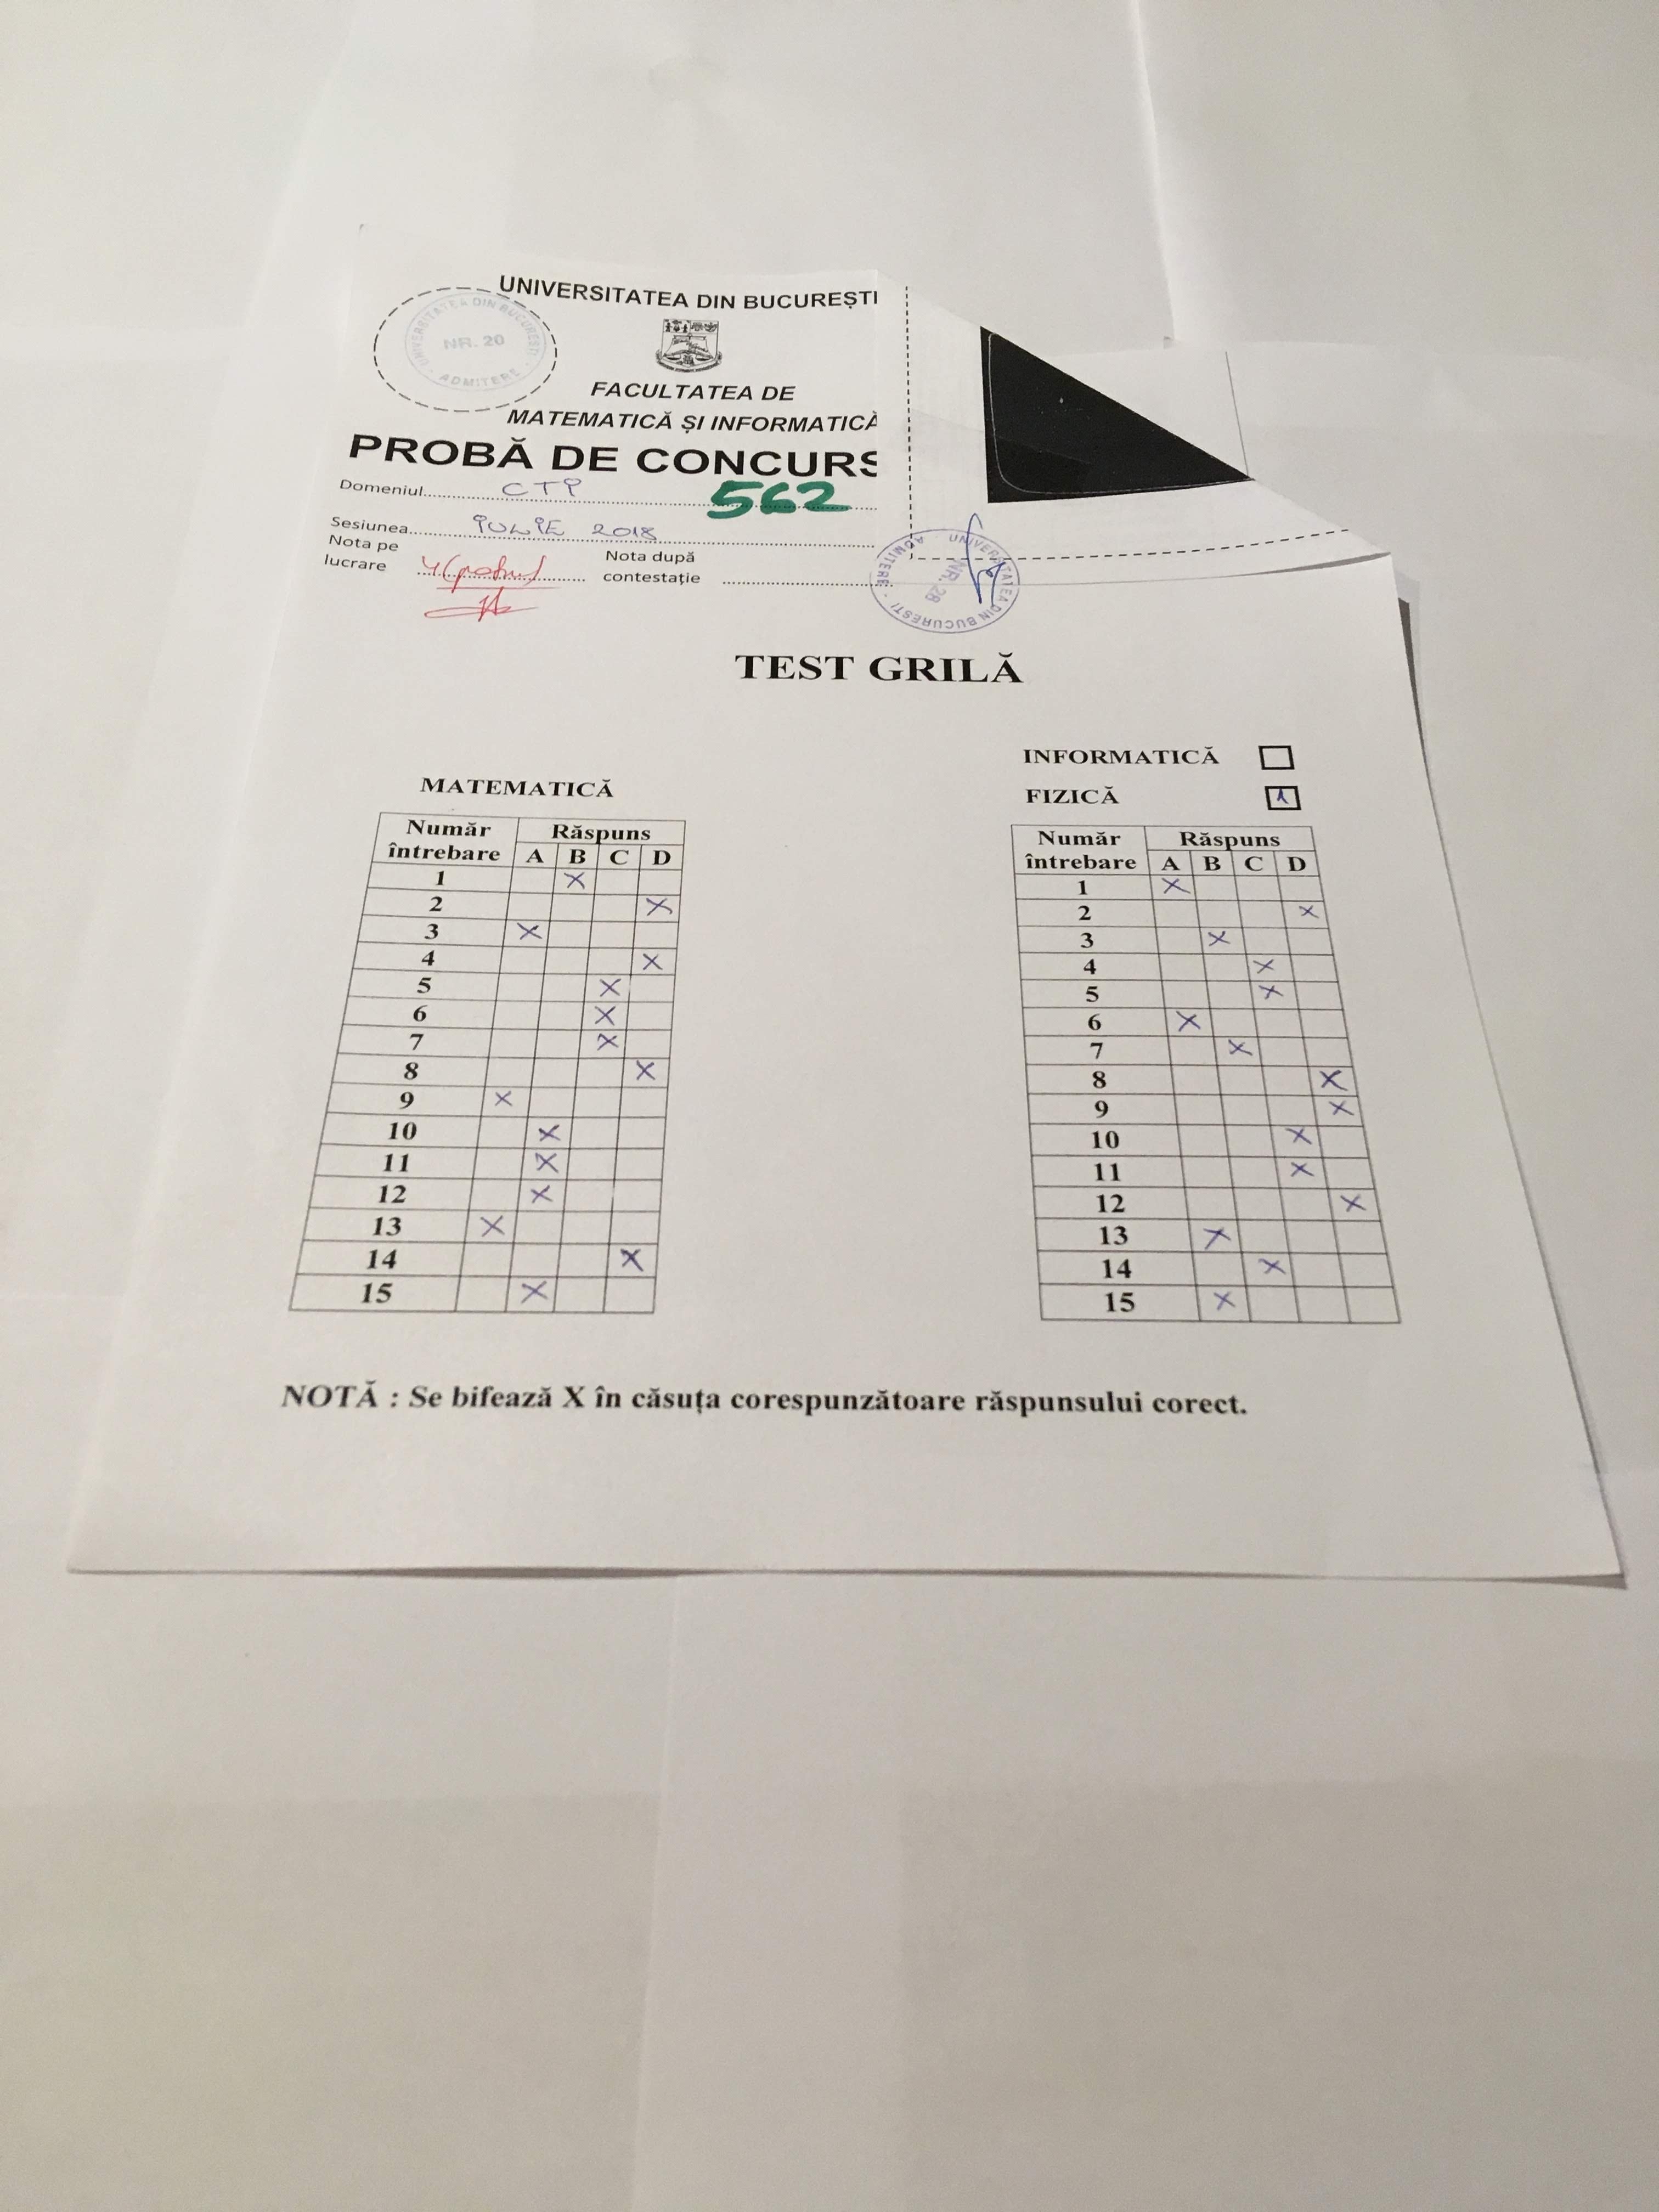 UNIVERSITATEA DIN BUCUREȘTI
UNIVERSITATEA DIN BUCUREȘTI · ADMITERE ·
NR. 20
FACULTATEA DE
MATEMATICĂ ȘI INFORMATICĂ
PROBĂ DE CONCURS
Domeniul CTI
562
Sesiunea IULIE 2018
Nota pe lucrare 4 (patru)
Nota după contestație
UNIVERSITATEA DIN BUCUREȘTI · ADMITERE ·
NR. 28
TEST GRILĂ
MATEMATICĂ
Număr întrebare Răspuns
A B C D
1 X
2 X
3 X
4 X
5 X
6 X
7 X
8 X
9 X
10 X
11 X
12 X
13 X
14 X
15 X
INFORMATICĂ
FIZICĂ 1
Număr întrebare Răspuns
A B C D
1 X
2 X
3 X
4 X
5 X
6 X
7 X
8 X
9 X
10 X
11 X
12 X
13 X
14 X
15 X
NOTĂ : Se bifează X în căsuța corespunzătoare răspunsului corect.